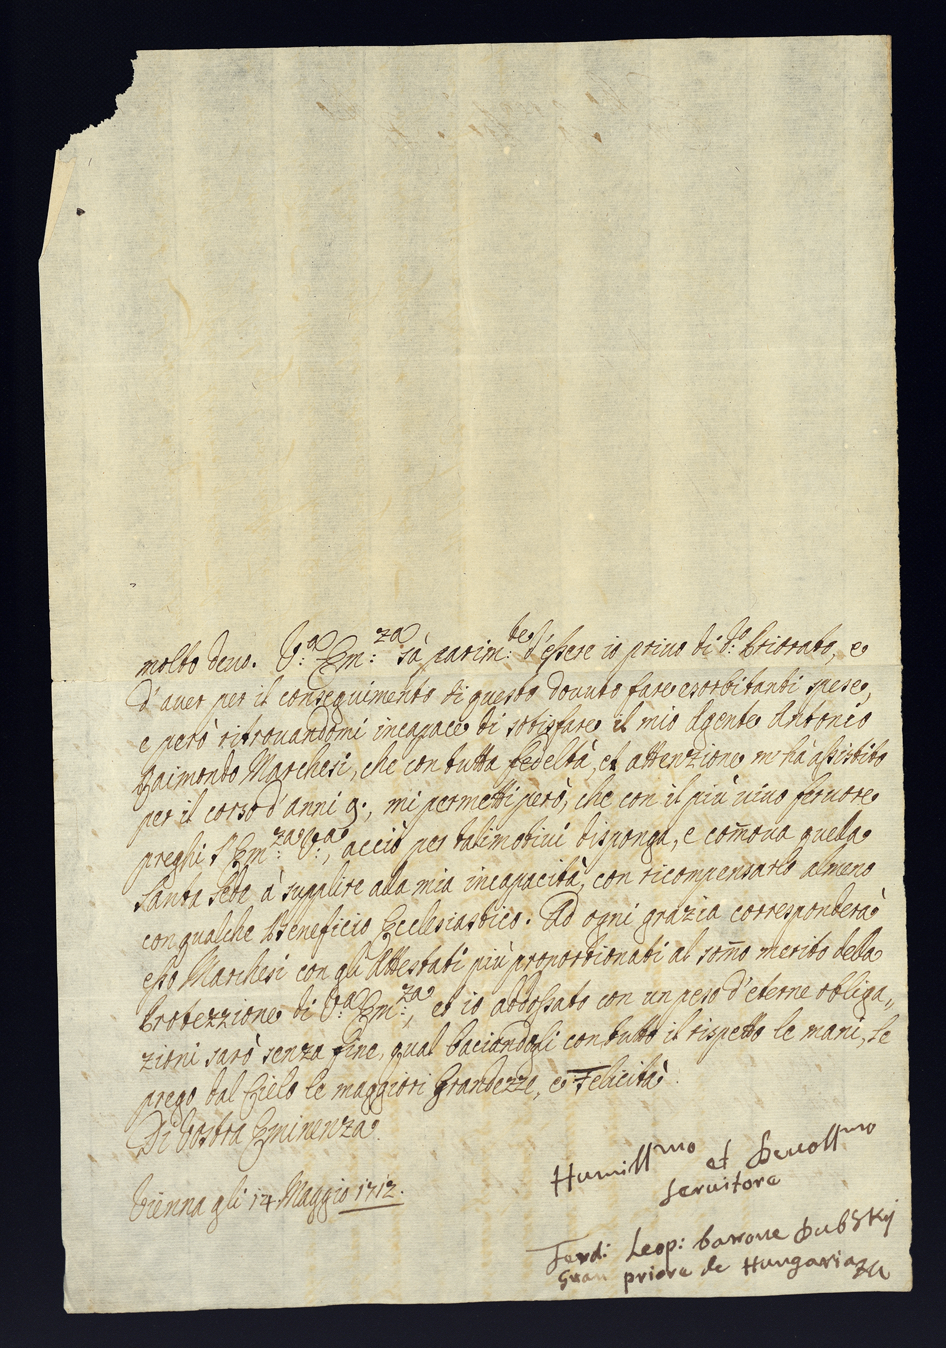 molto devo. V.a Em:za sà parim:te d'essere io privo di d:o Priorato, e
d'aver per il conseguimento di questo dovuto fare esorbitanti spese,
e però ritrovandomi incapace di sotisfare il mio Agente Antonio
Raimondo Marchesi, che con tutta fedeltà, et attenzione m'hà assistito
per il corso d'anni 9., mi permetti però, che con il più vivo fervore
preghi l'Em:za V:a, acciò per tali motivi disponga, e com̃ova quella
Santa Sede à supplire alla mia incapacità, con ricompensarlo almeno
con qualche Beneficio Ecclesiastico. Ad ogni grazia corrisponderà
esso Marchesi con gli Attestati più proporzionati al som̃o merito della
Protezzione di V:a Em:za, et io addossato con un peso d'eterne obliga„
zioni sarò senza fine, qual baciandogli con tutto il rispetto le mani, le
prego dal Cielo le maggiori Grandezze, e Felicità.
Di Vostra Eminenza.
Vienna gli 14 Maggio 1712.
Humillmo et Devollmo
servitore
Ferd: Leop: barone Dubsky
Gran priore de Hungaria